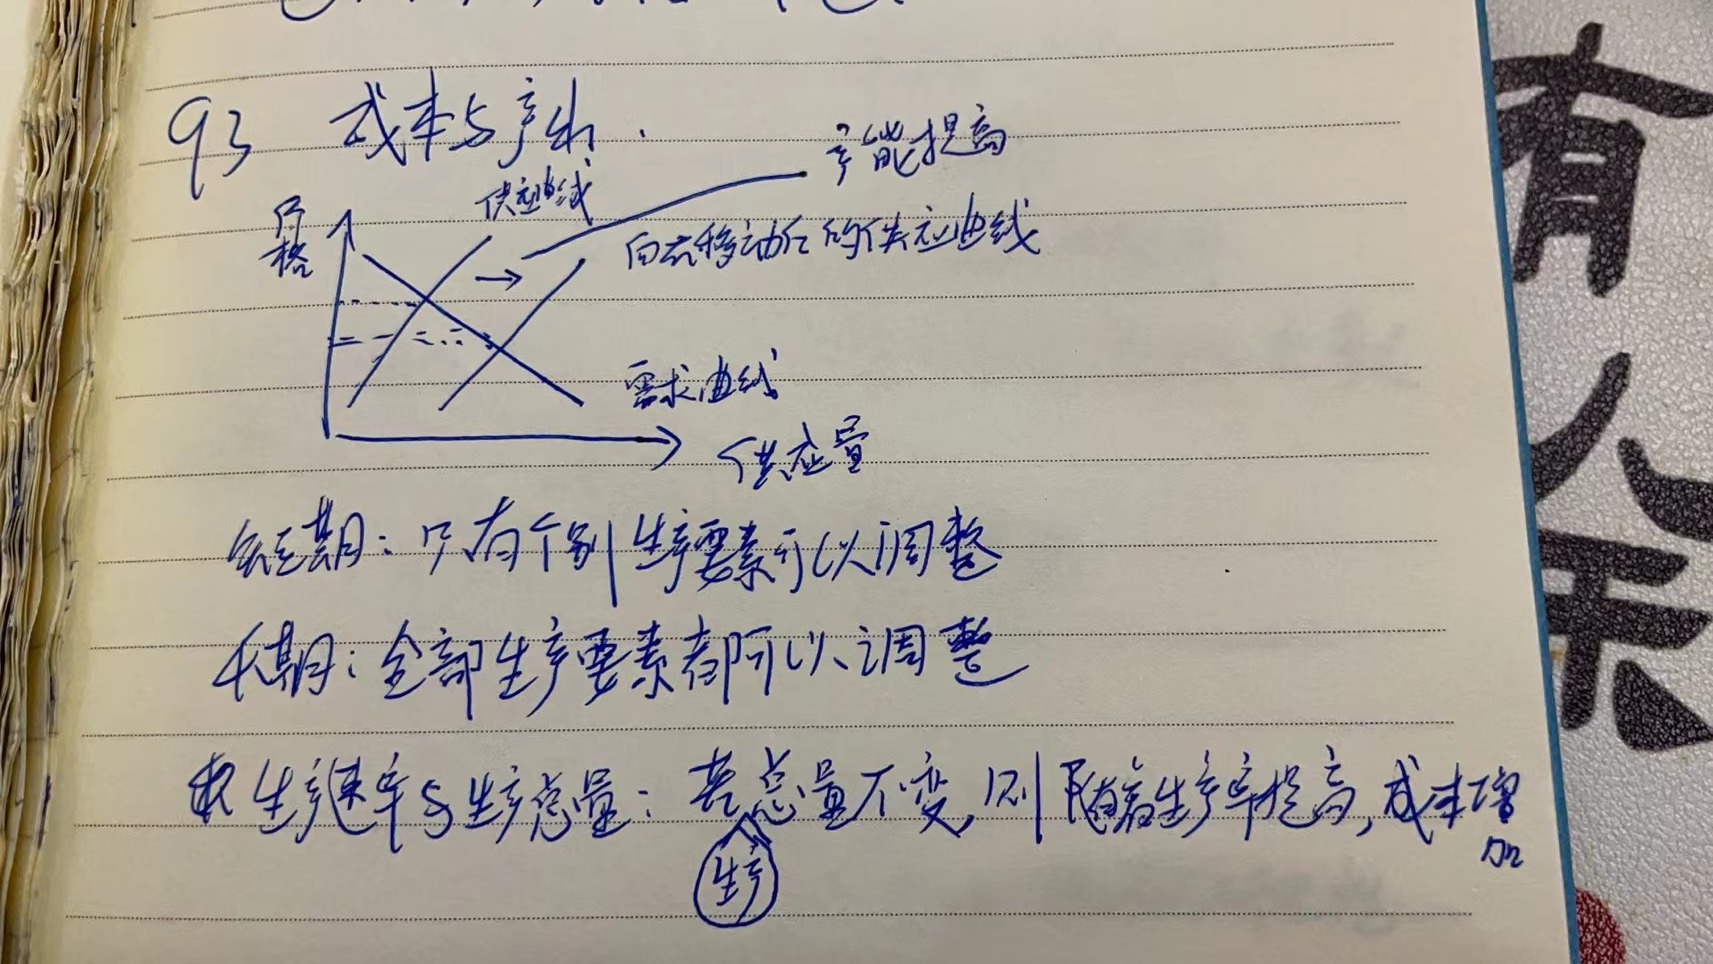 93 成本与产出.
产能提高
供应曲线
价格
向右移动后的供应曲线
需求曲线
供应量
短期：只有个别生产要素可以调整
长期：全部生产要素都可以调整
生产速率与生产总量：若生产总量不变，则随着生产率提高，成本增加
有
余